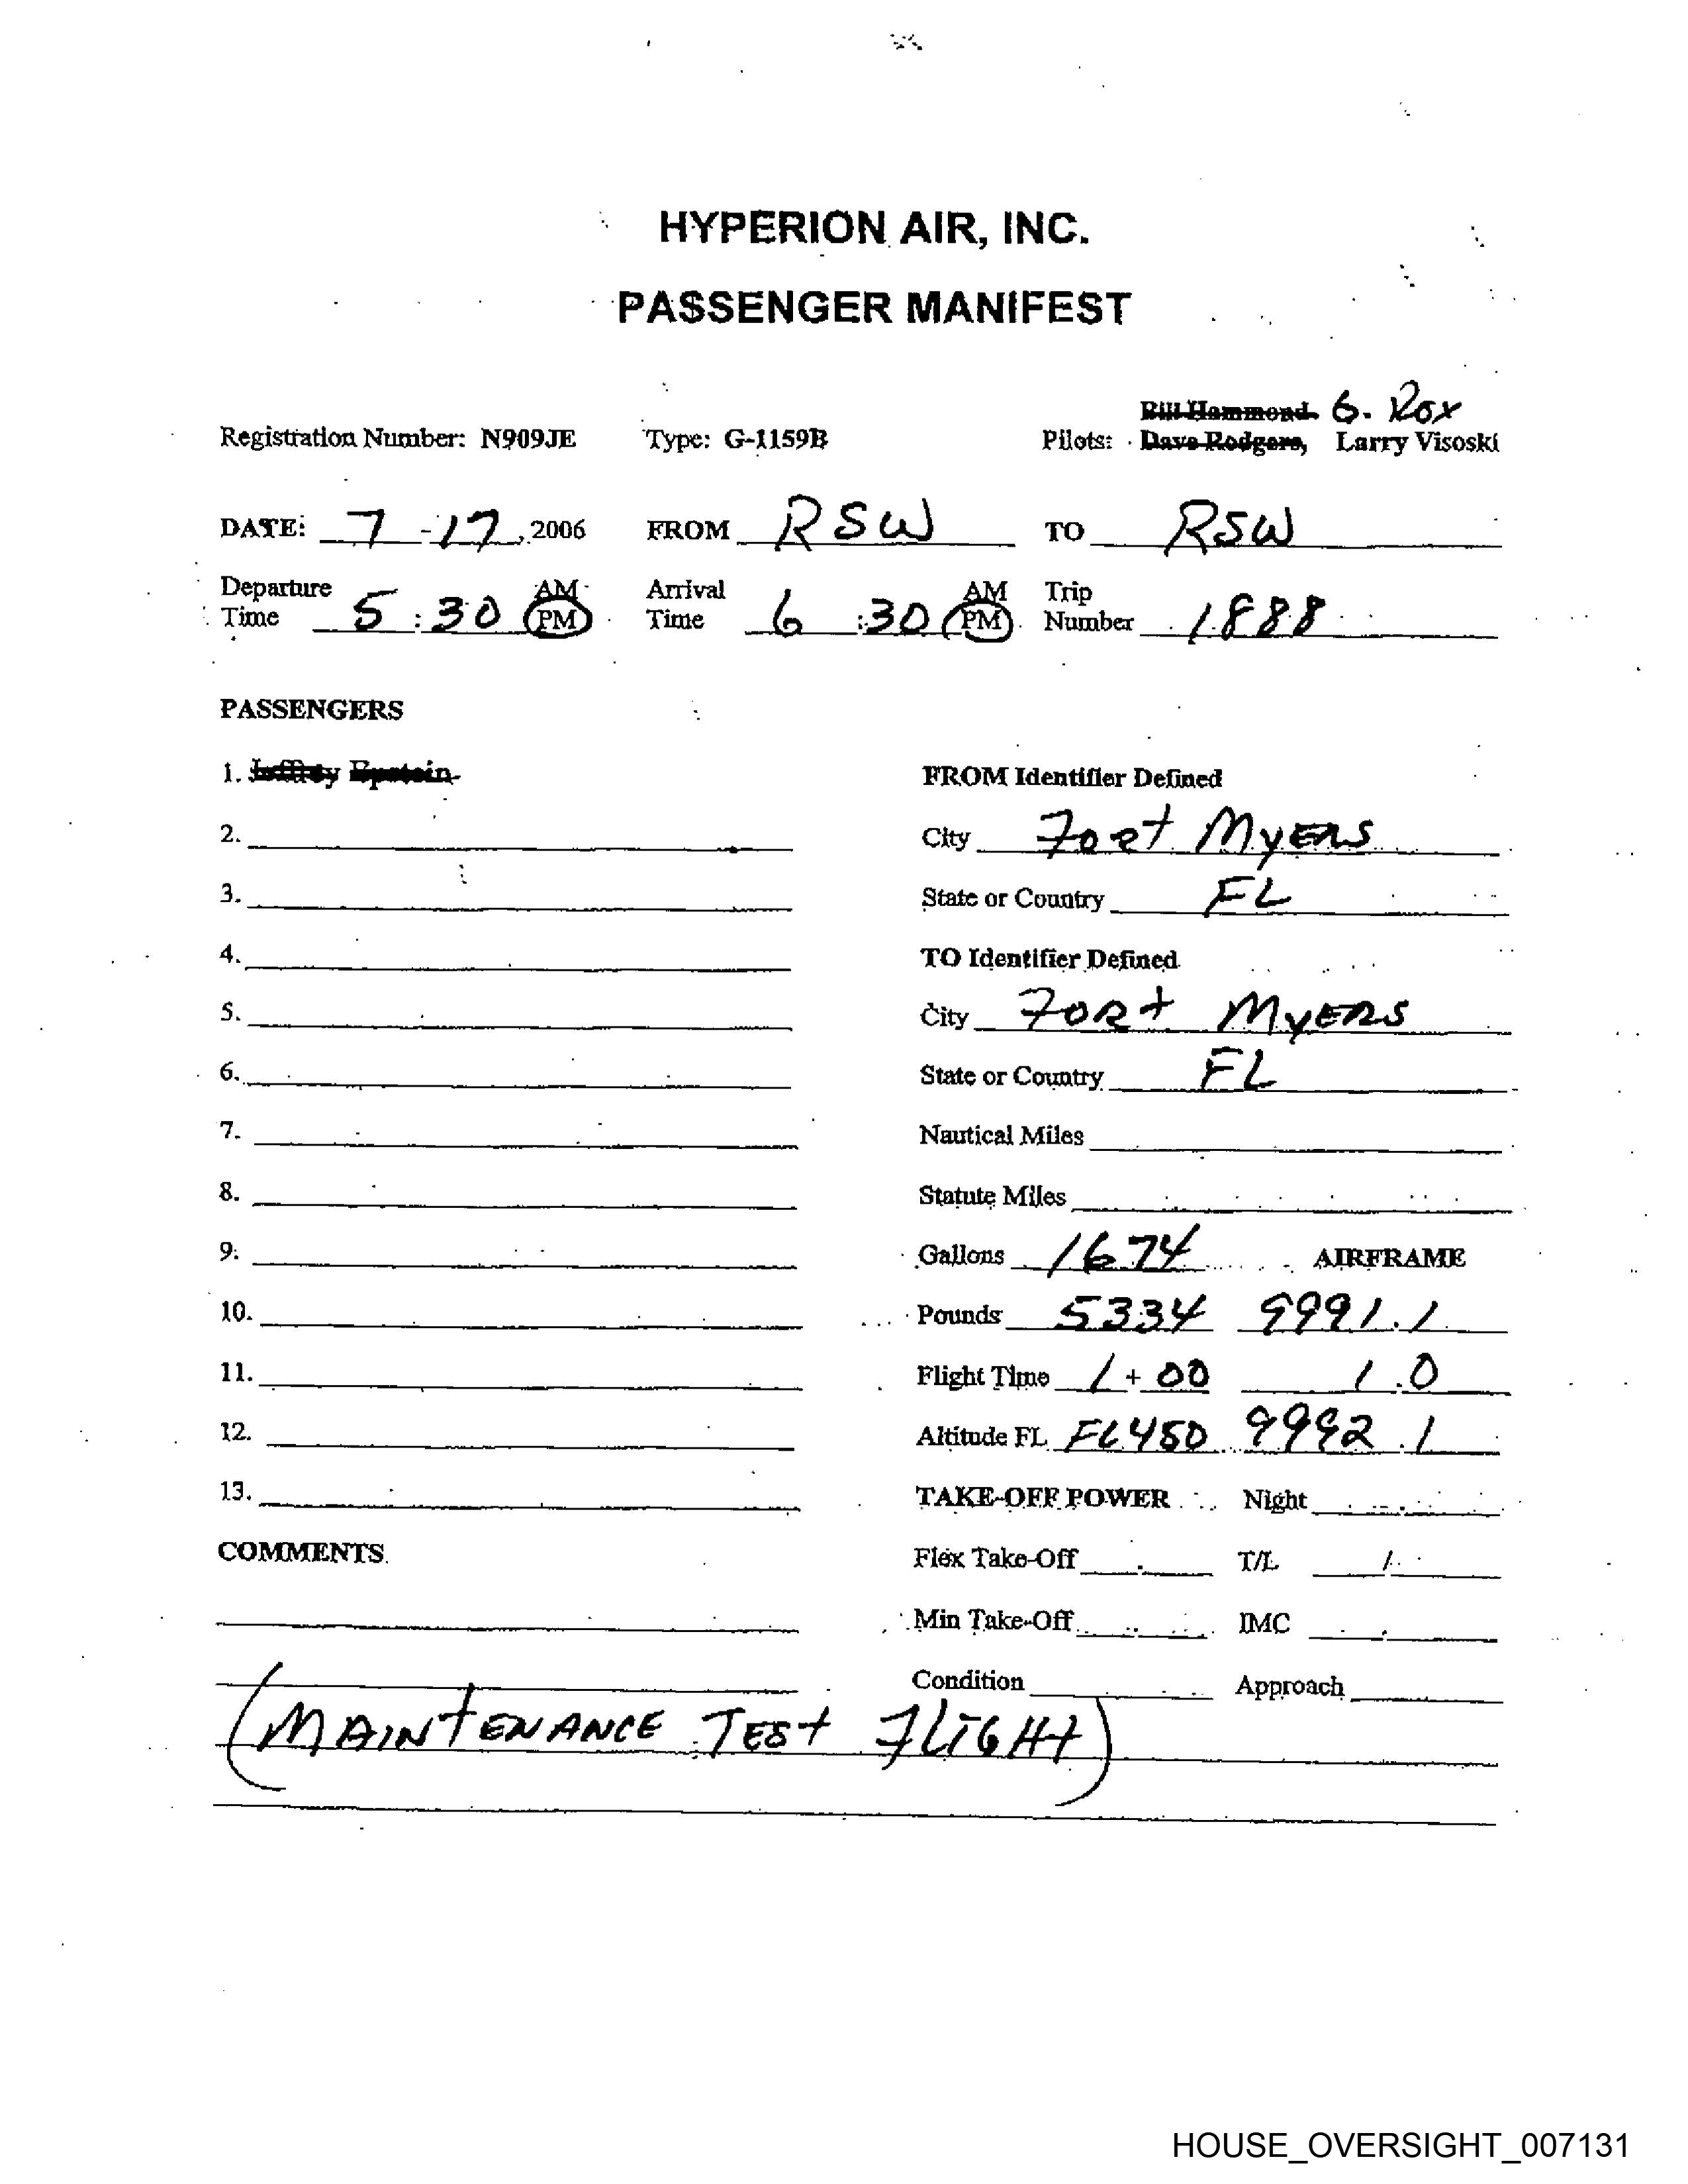 HYPERION AIR, INC.
PASSENGER MANIFEST
Bill Hammond G. Rox
Registration Number: N909JE Type: G-1159B Pilots: Dave Rodgers, Larry Visoski
DATE: 7-17, 2006 FROM RSW TO RSW
Departure AM Arrival AM Trip
Time 5:30 PM Time 6:30 PM Number 1888
PASSENGERS
1. Jeffrey Epstein FROM Identifier Defined
2. City Fort Myers
3. State or Country FL
4. TO Identifier Defined
5. City Fort Myers
6. State or Country FL
7. Nautical Miles
8. Statute Miles
9. Gallons 1674 AIRFRAME
10. Pounds 5334 9991.1
11. Flight Time 1+00 1.0
12. Altitude FL FL450 9992.1
13. TAKE-OFF POWER Night
COMMENTS Flex Take-Off T/L /
Min Take-Off IMC
Condition Approach
(MAINTENANCE TEST FLIGHT)
HOUSE_OVERSIGHT_007131